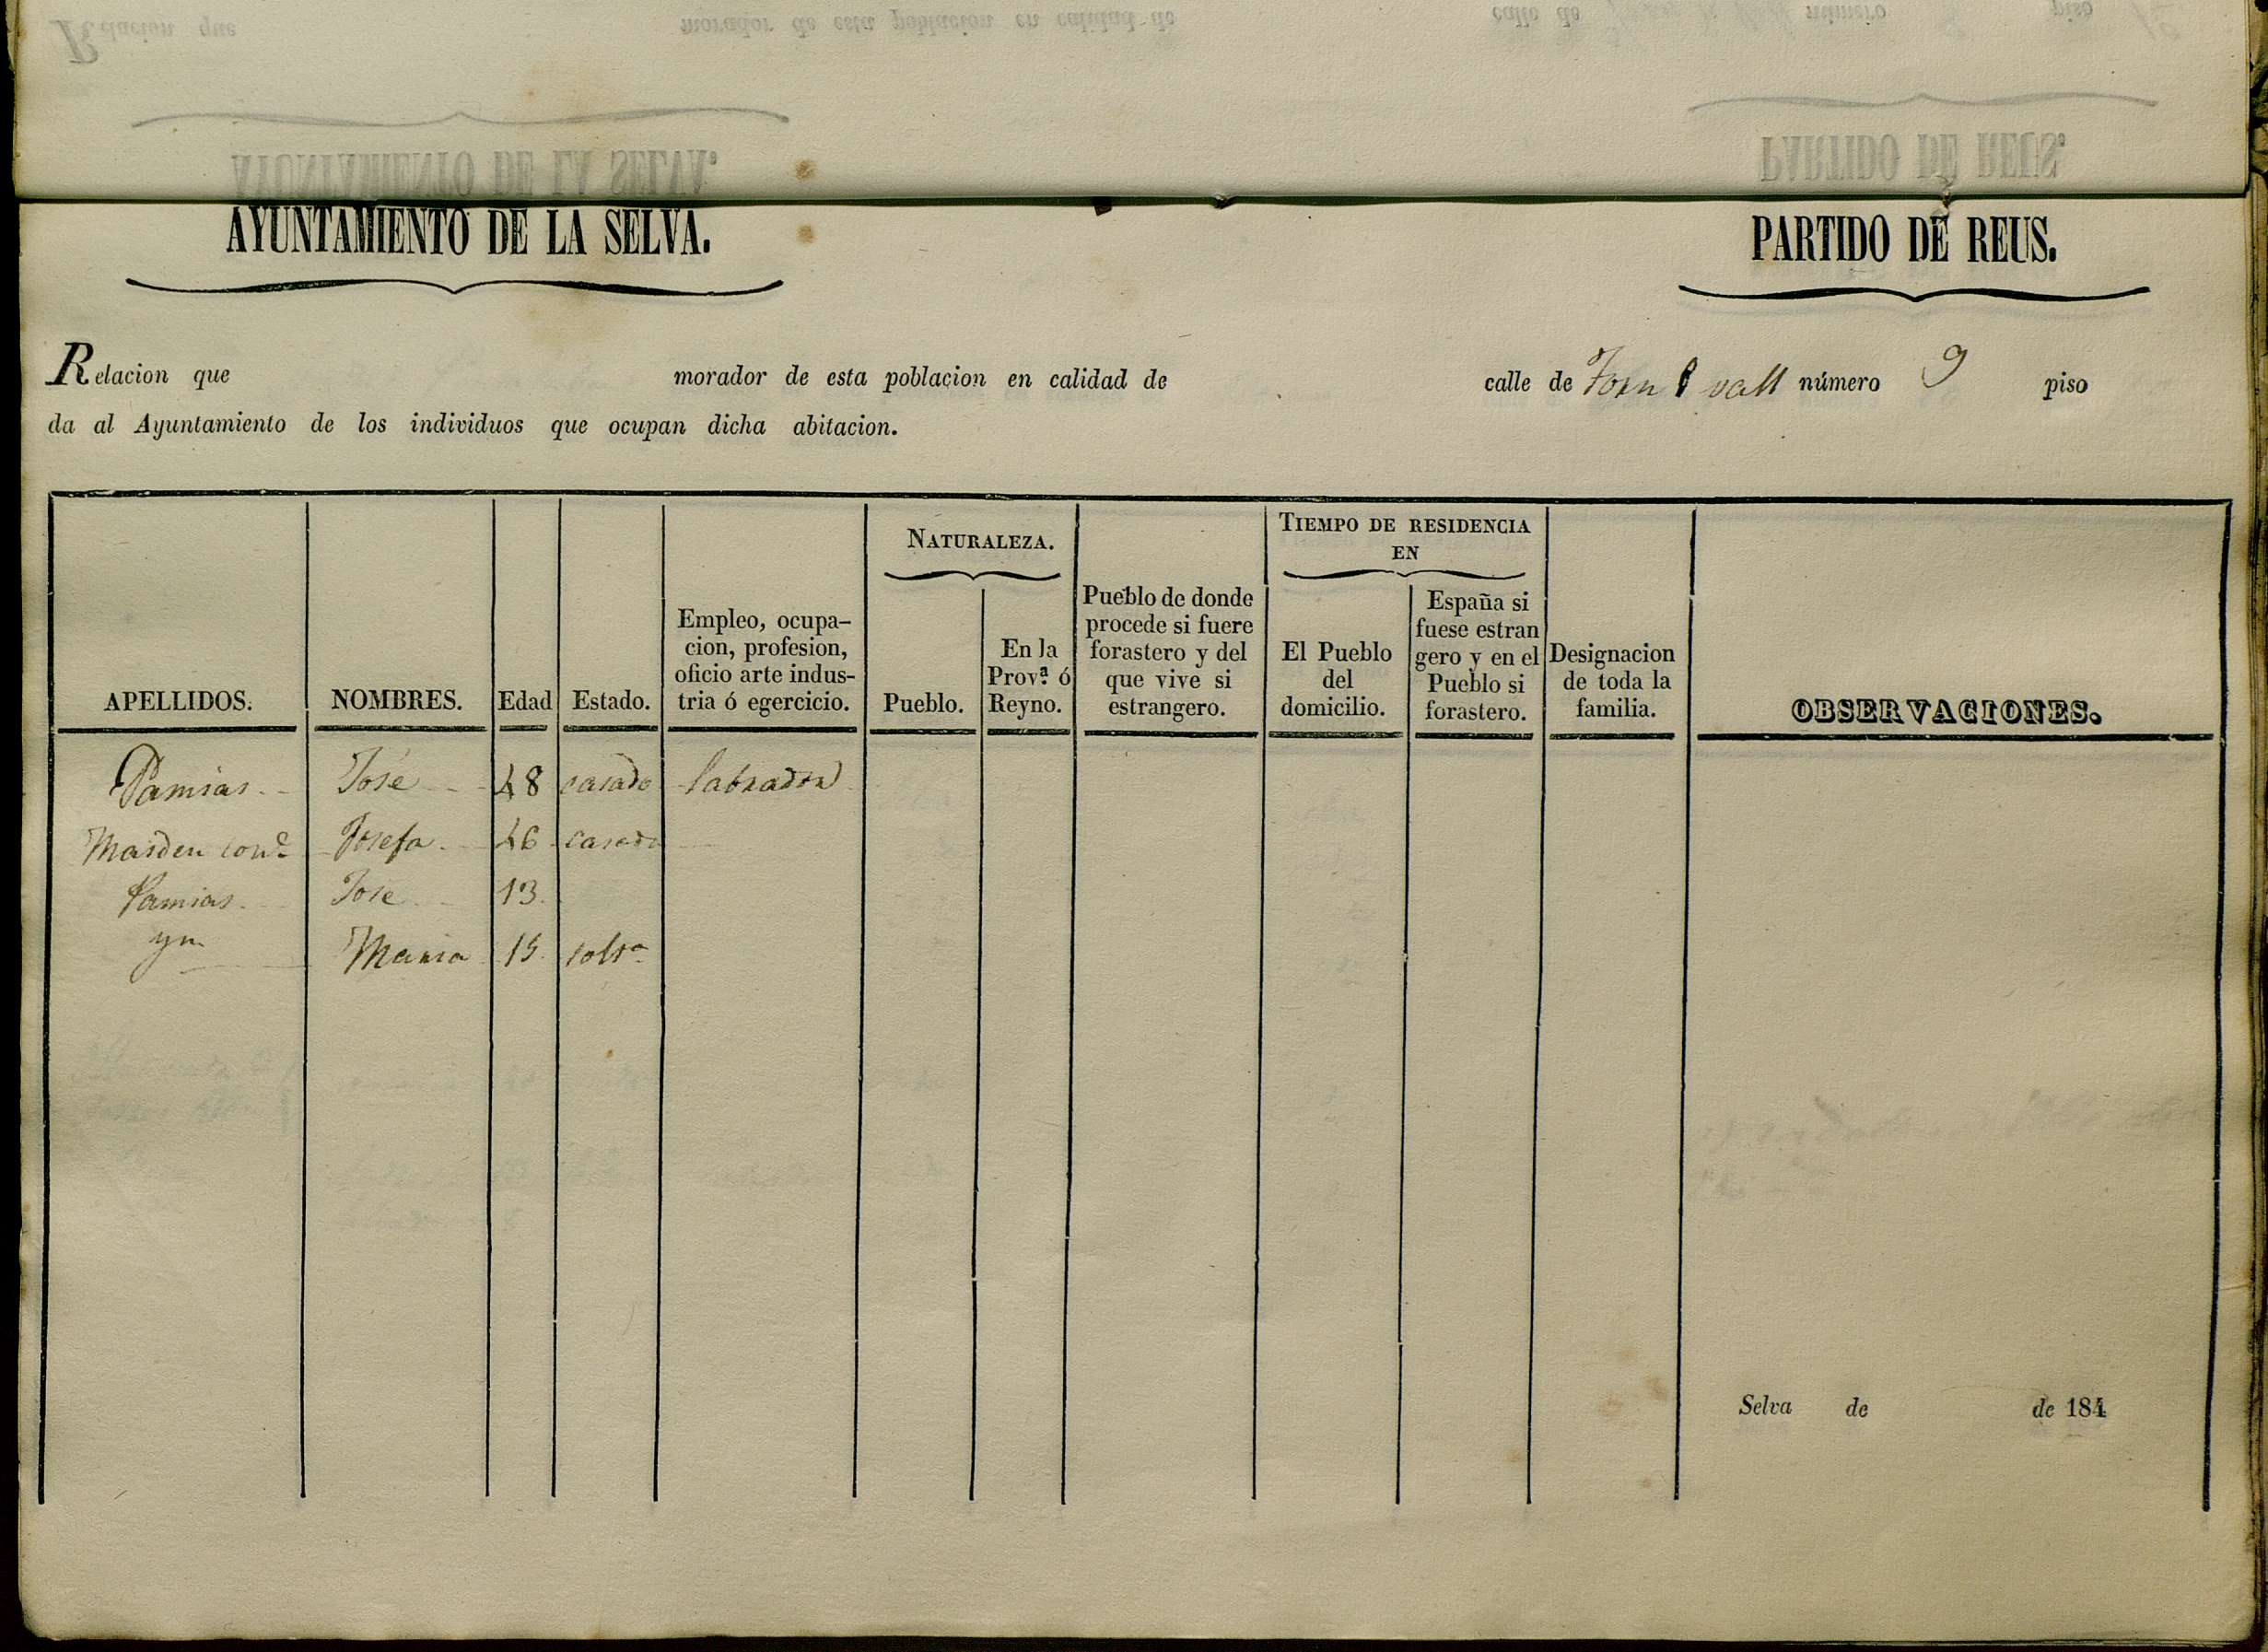 AYUNTAMIENTO DE LA SELVA.
PARTIDO DE REUS.
Relacion que morador de esta poblacion en calidad de calle de Forn vall número 9 piso
da al Ayuntamiento de los individuos que ocupan dicha abitacion.
APELLIDOS.
NOMBRES.
Edad
Estado.
Empleo, ocupa-
cion, profesion,
oficio arte indus-
tria ó egercicio.
NATURALEZA.
Pueblo.
En la
Prov.ª ó
Reyno.
Pueblo de donde
procede si fuere
forastero y del
que vive si
estrangero.
TIEMPO DE RESIDENCIA
EN
El Pueblo
del
domicilio.
España si
fuese estran
gero y en el
Pueblo si
forastero.
Designacion
de toda la
familia.
OBSERVACIONES.
Pamias José 48 casado labrador
Masdeu Josefa 46 casada
Pamias Jose 13
ym Maria 15 solt.ª
Selva de de 184